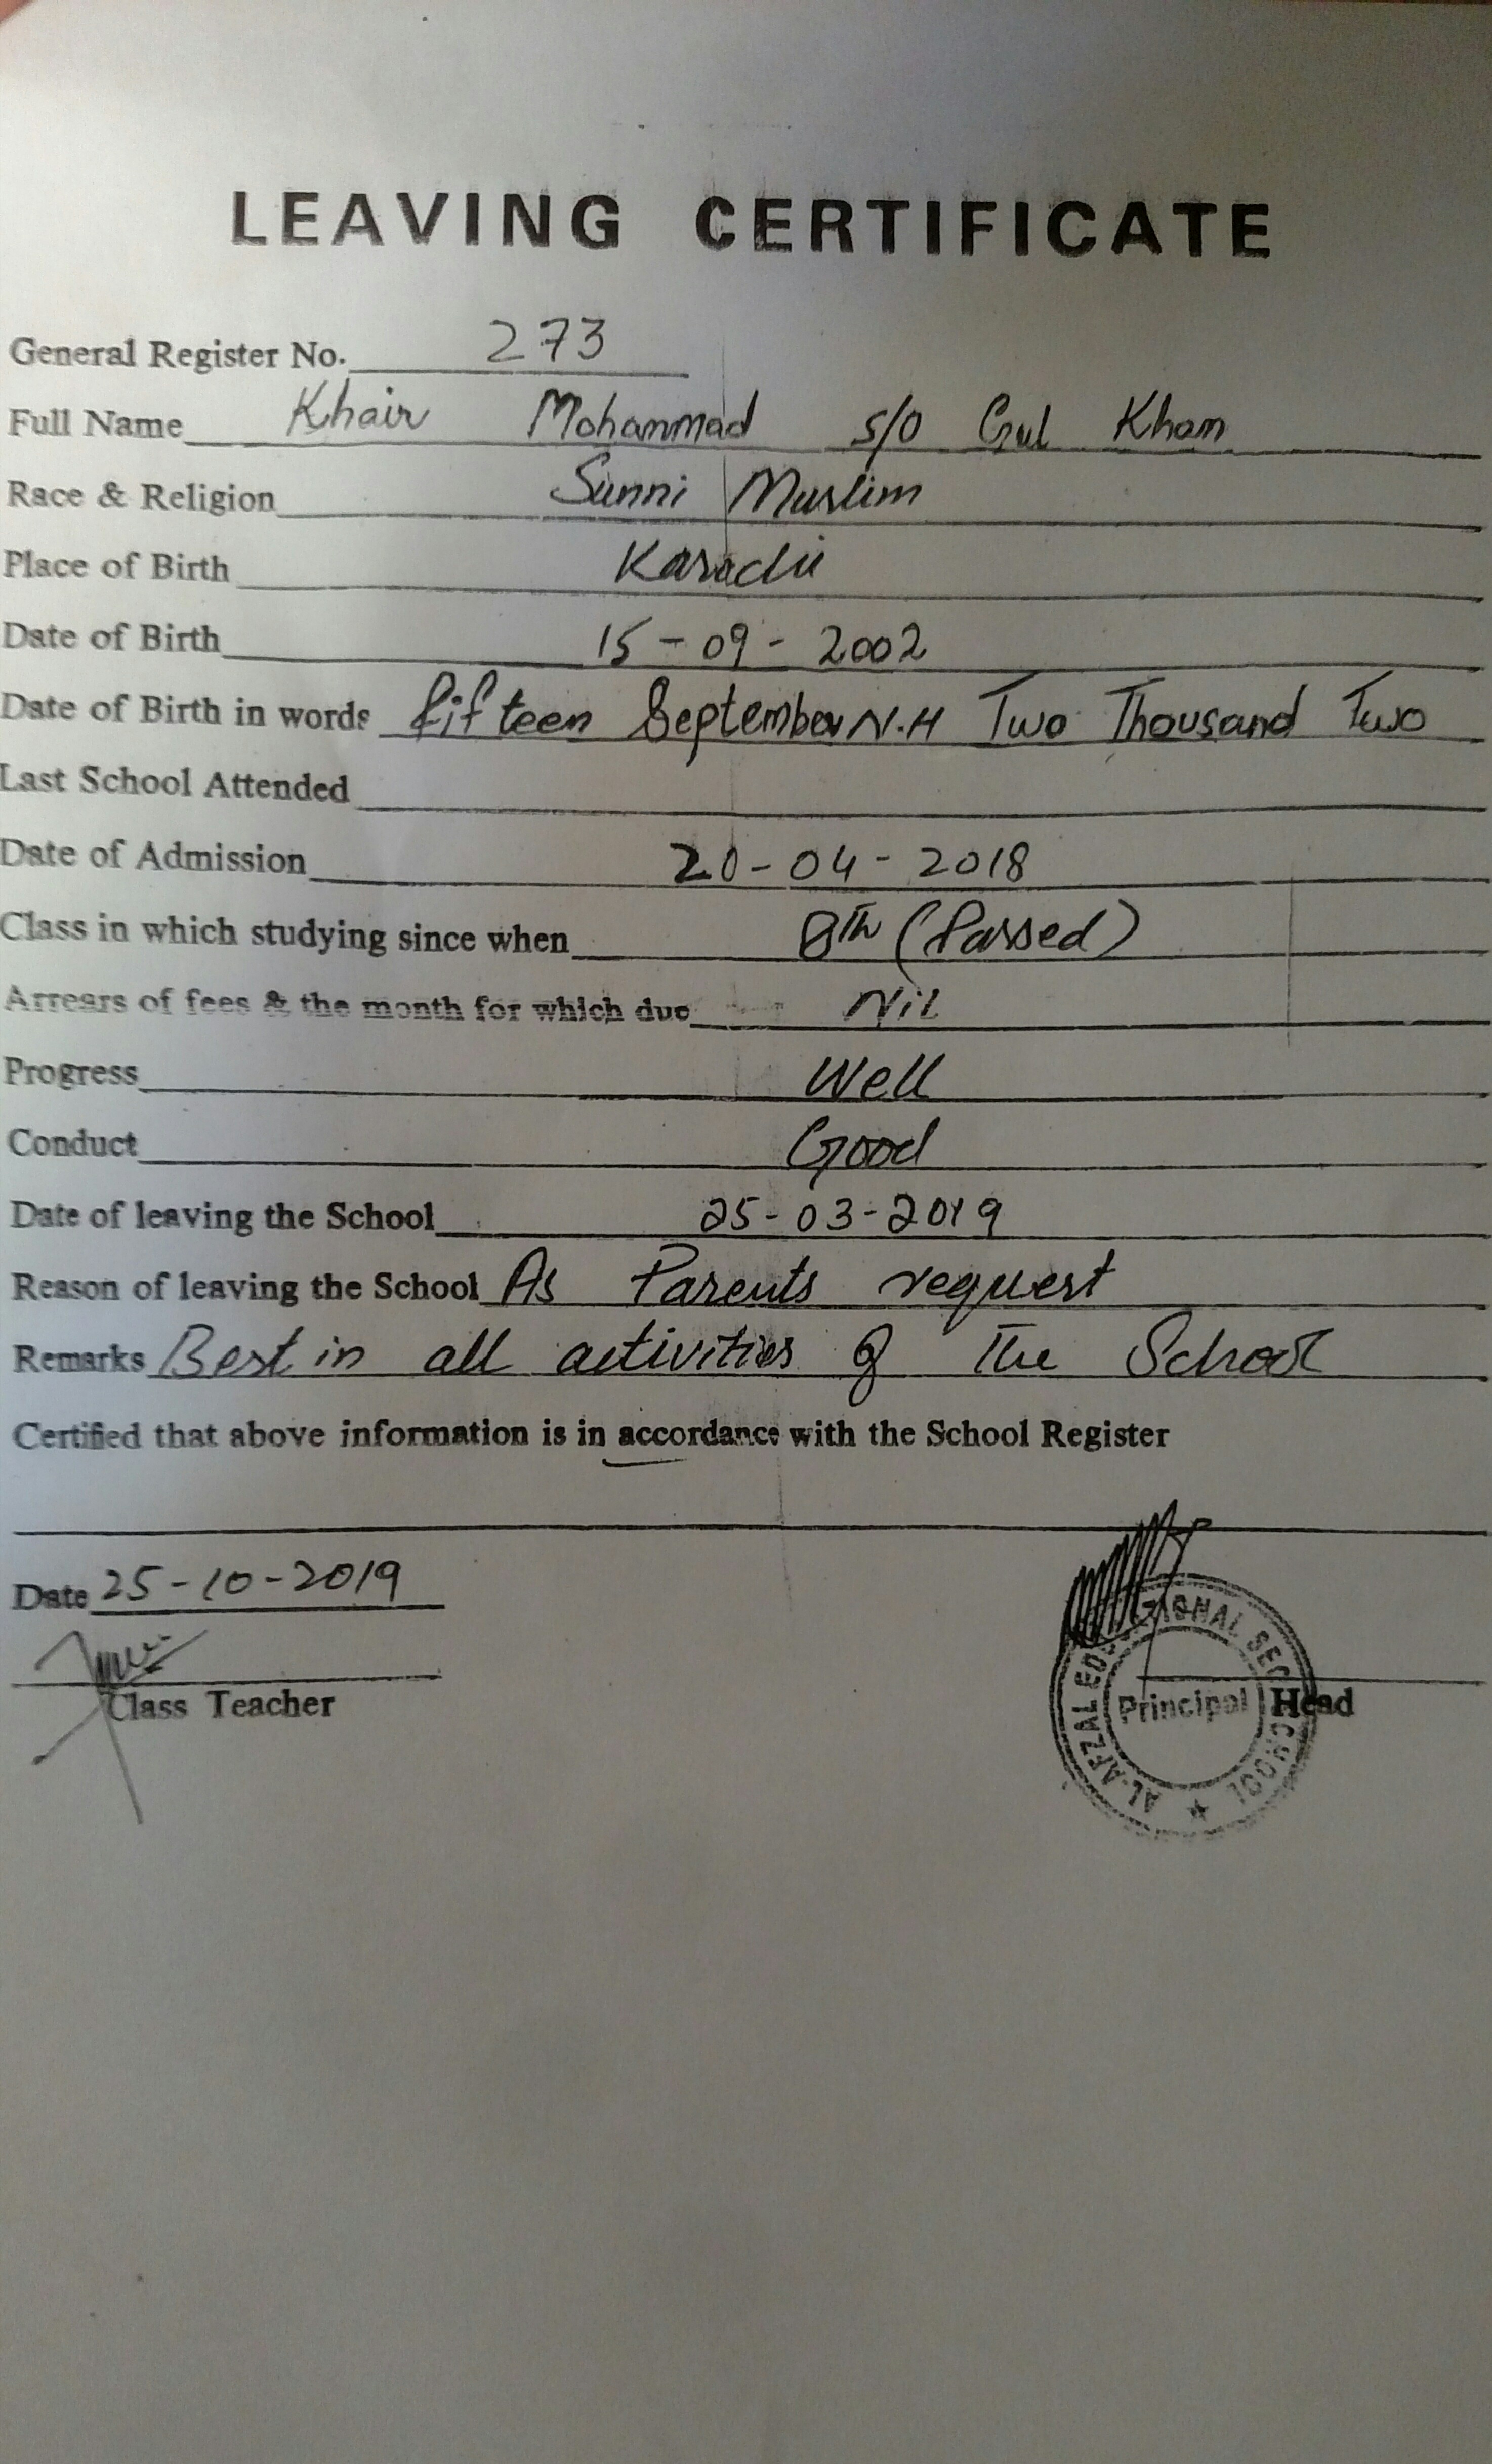 LEAVING CERTIFICATE
General Register No. 273
Full Name Khair Mohammad s/o Gul Khan
Race & Religion Sunni Muslim
Place of Birth Karachi
Date of Birth 15-09-2002
Date of Birth in words fifteen September N.H Two Thousand Two
Last School Attended
Date of Admission 20-04-2018
Class in which studying since when 8th (Passed)
Arrears of fees & the month for which due Nil
Progress Well
Conduct Good
Date of leaving the School 25-03-2019
Reason of leaving the School As Parents request
Remarks Best in all activities of The School
Certified that above information is in accordance with the School Register
Date 25-10-2019
Class Teacher
Principal Head
AL-AFZAL SCHOOL